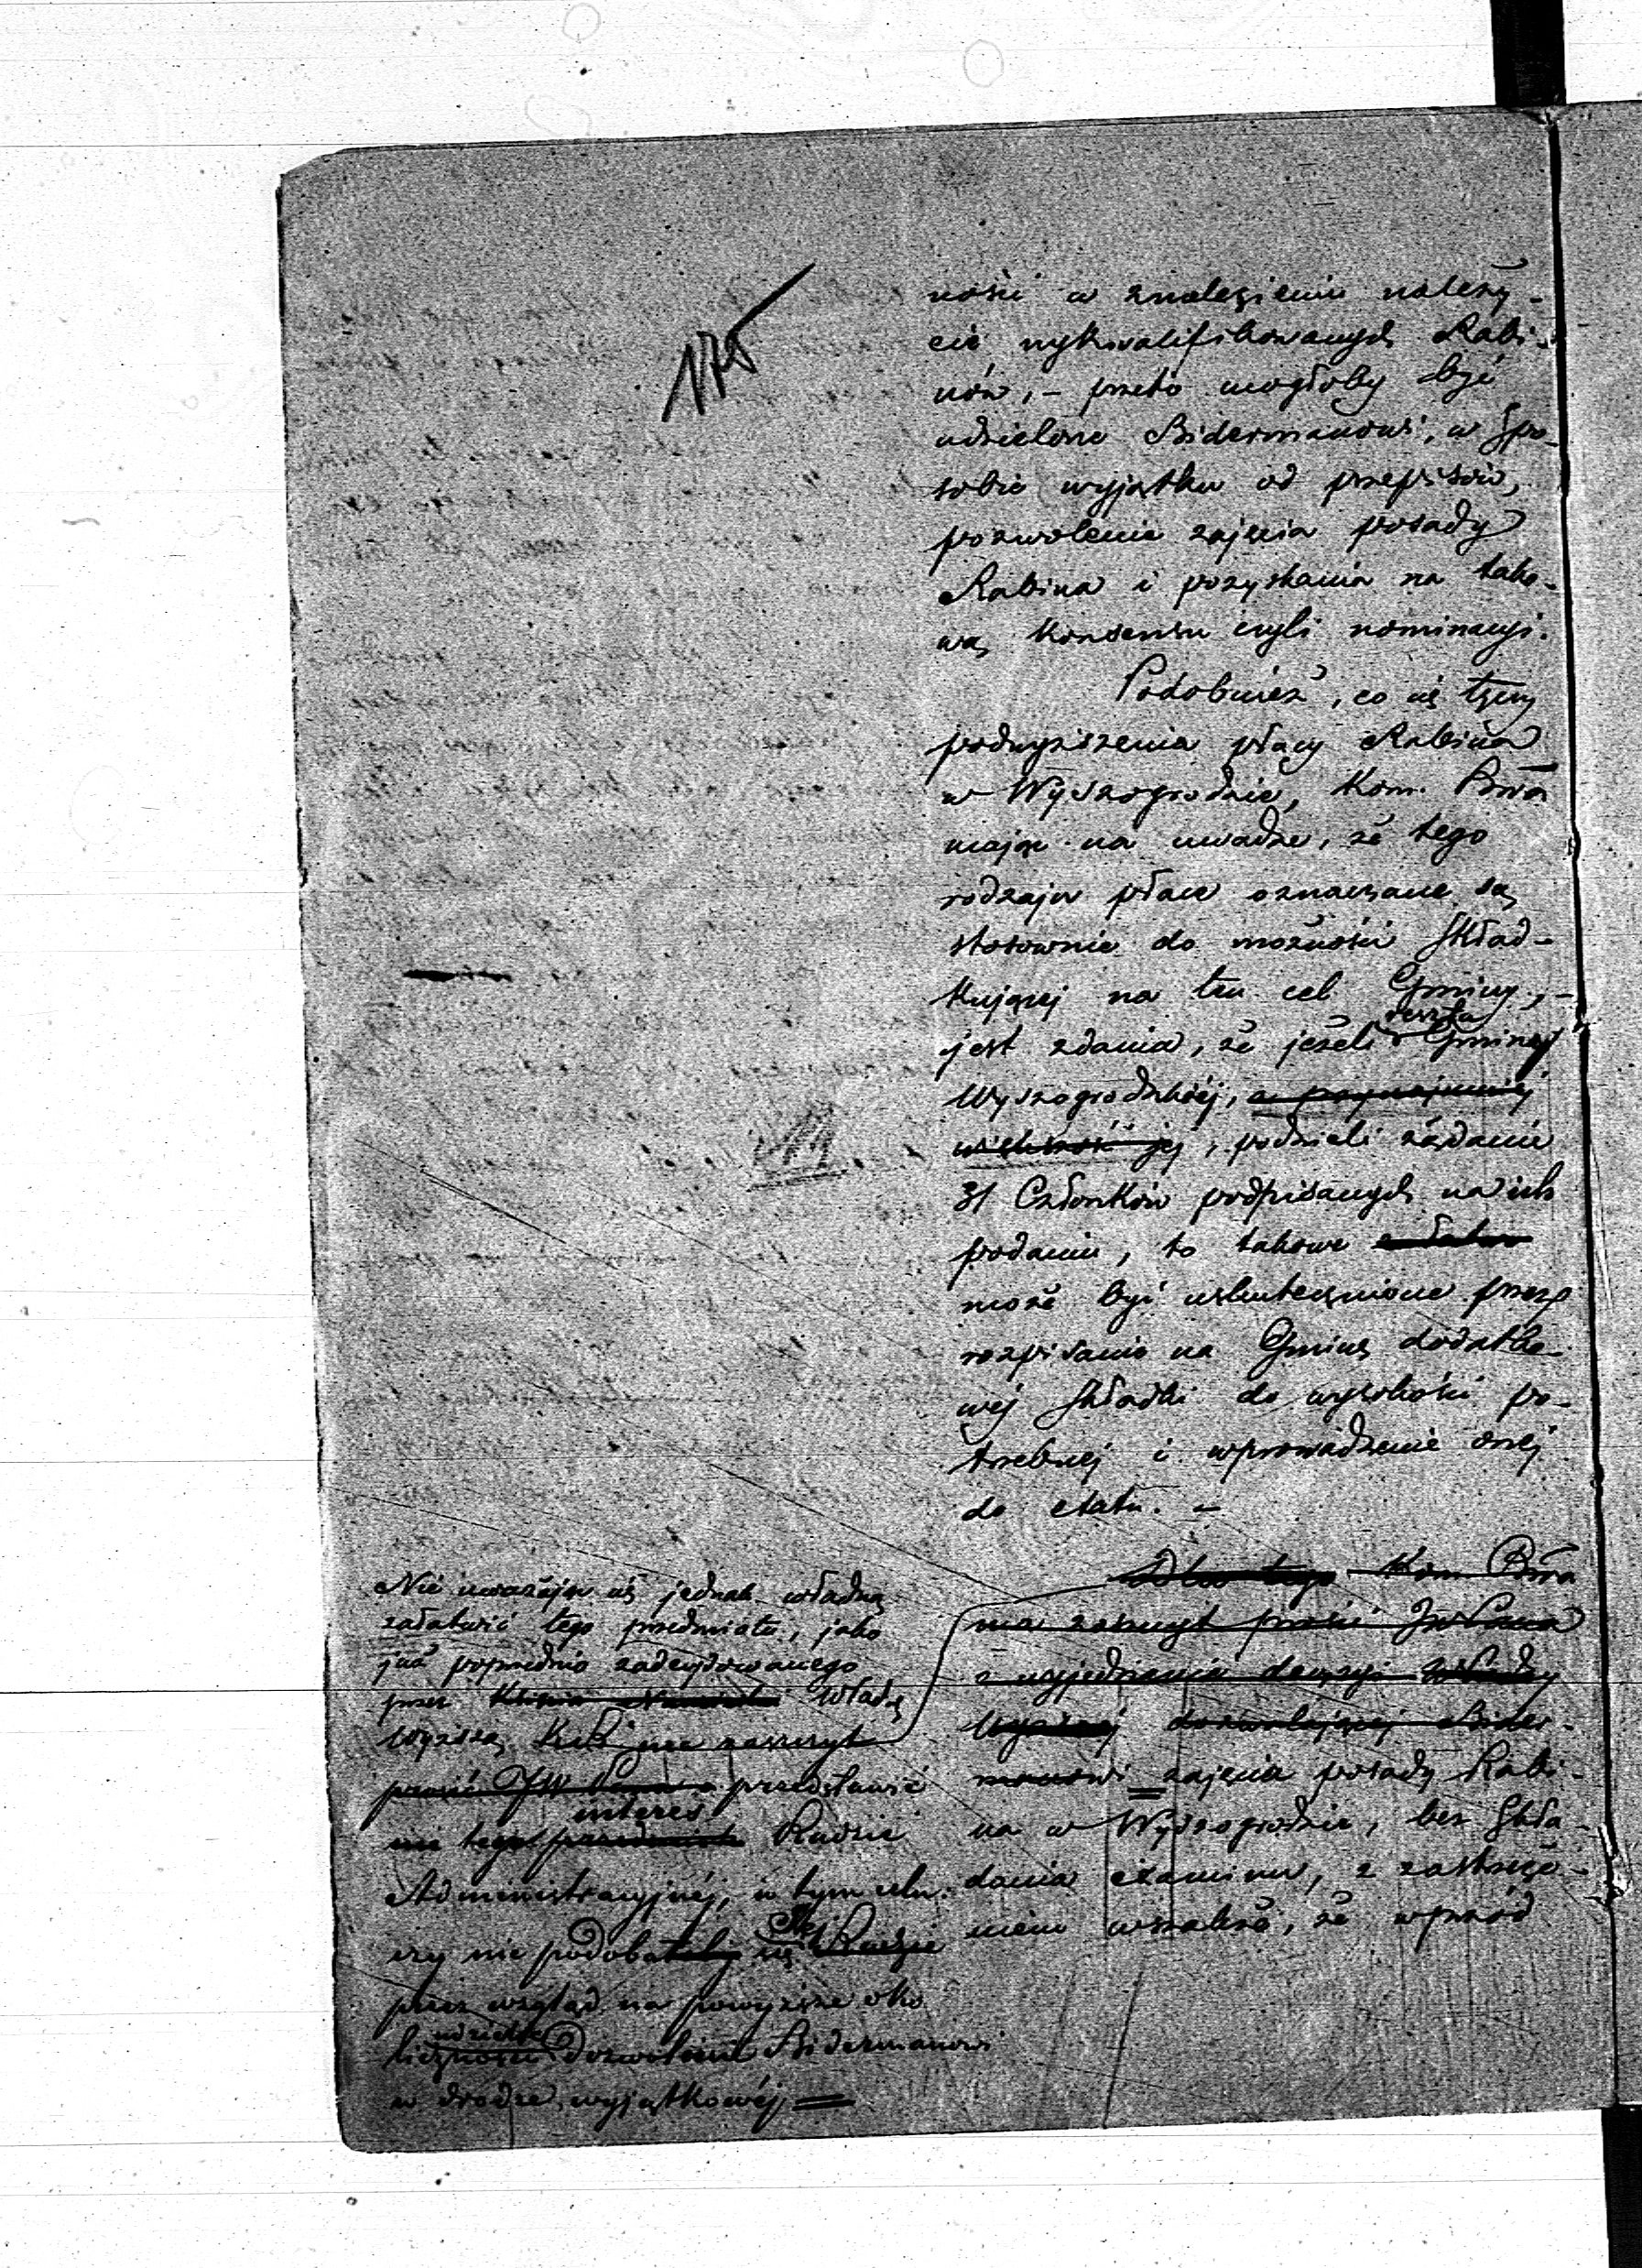 175
ności w znalezieniu należy-
cie wykwalifikowanych Rabi-
nów, – przeto mogłoby być
udzielone Bidermanowi, w spo-
sobie wyjątku od przepisów,
pozwolenie zajęcia posady
Rabina i pozyskania na tako-
wą Konsensu czyli nominacyi.
Podobnież, co się tyczy
podwyższenia płacy Rabina
w Wyszogrodzie, Kom. Rwa
mając na uwadze, że tego
rodzaju płace oznaczane są
stosownie do możności Skład-
kującej na ten cel Gminy, –
reszta
jest zdania, że jeżeli Gminy
Wyszogrodzkiéj, a przynajmniéj
większość jej, podzieli żądanie
31 Członków podpisanych na ich
podaniu, to takowe
może być uskutecznione przez
rozpisanie na Gminę dodatko-
wéj Składki do wysokości po-
trzebnej i wprowadzenie onej
do etatu. –
Kom Rwa
ma zaszczyt prosić JW Pana
o wyjednanie decyzyi Władzy
Wyższej dozwalającej Bider-
manowi zajęcia posady Rabi-
na w Wyszogrodzie, bez Skła-
dania examinu, z zastrzeże-
niem wszakże, że wprzód
Nie uważając się jednak władną
załatwić tego przedmiotu, jako
już poprzednio zadecydowanego
przez Władzę
wyższą, KR ma zaszczyt
prosić JW Pana przedstawić
interes
tego przedmiotu Radzie
Administracyjnéj, w tym celu
Jej
czy nie podobałoby się Radzie
przez wzgląd na powyższe oko
udzielić
liczności Dozwolenia Bidermanowi
w drodze wyjątkowéj